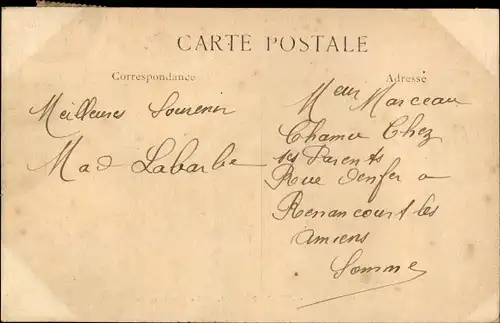 CARTE POSTALE
Correspondance
Adresse
Meilleures Souvenir
Mad Labarbe
Meur Marceau
Chamu Chez
ses Parents
Rue denfer a
Renancourt les
Amiens
Somme